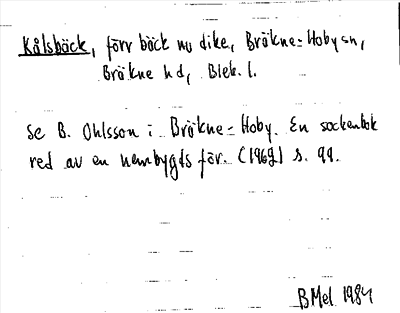 Kålsbäck, förr bäck nu dike, Bräkne-Hoby sn,
Bräkne hd, Blek. l.
Se B. Ohlsson i Bräkne-Hoby. En sockenbok
red av en hembygds för. (1969) s. 99.
BMel 1984